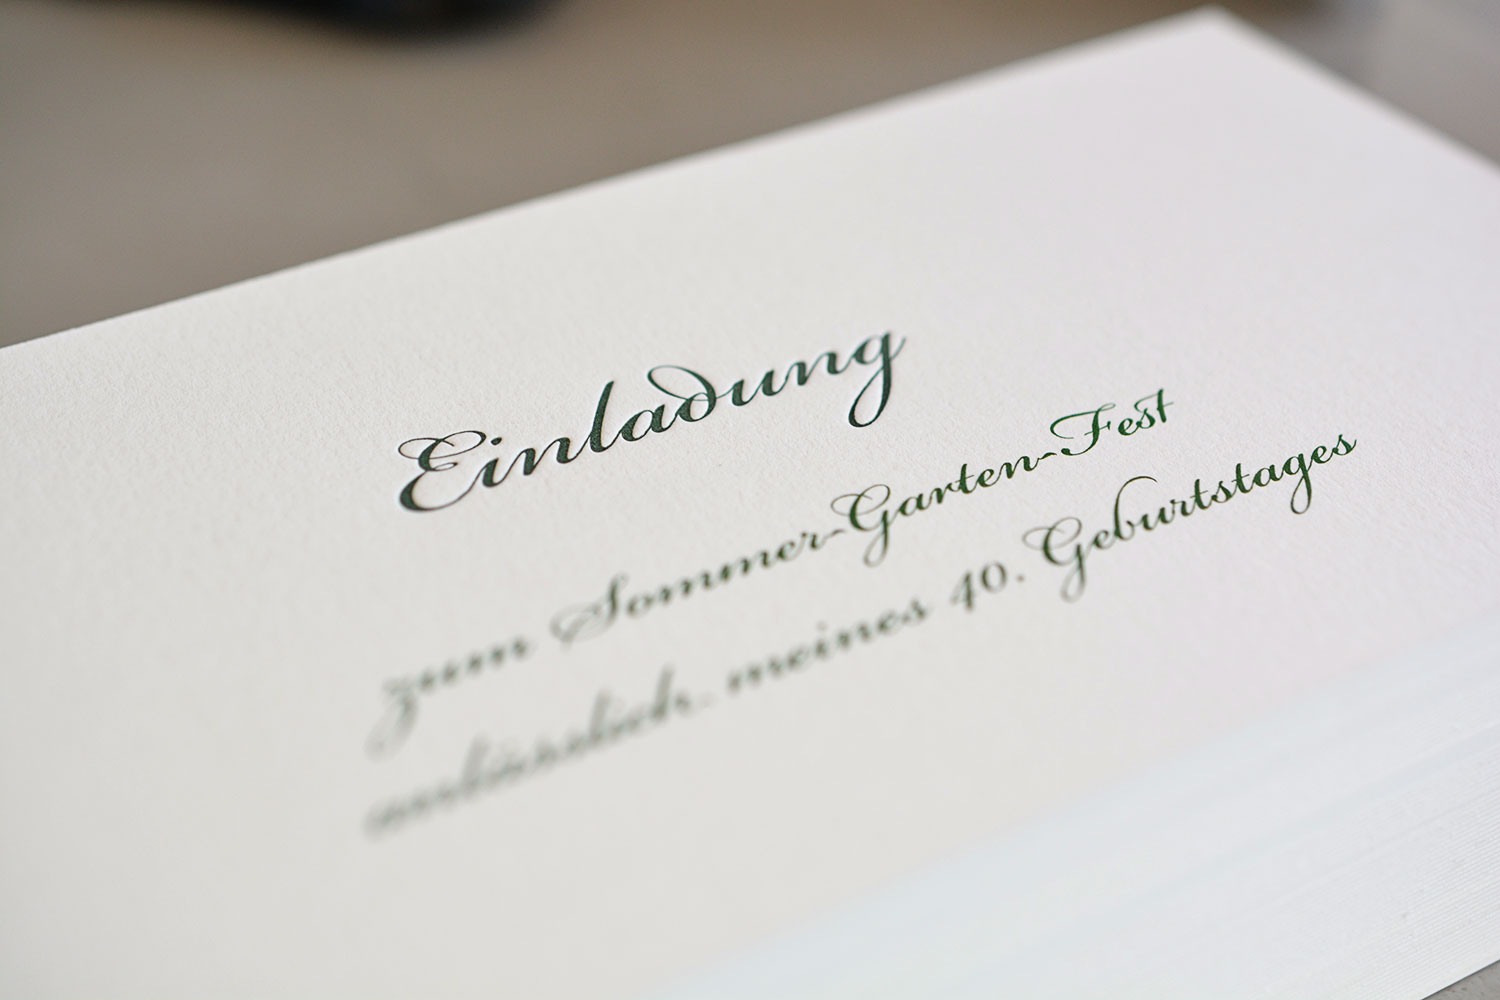 Einladung
zum Sommer-Garten-Fest
anlässlich meines 40. Geburtstages